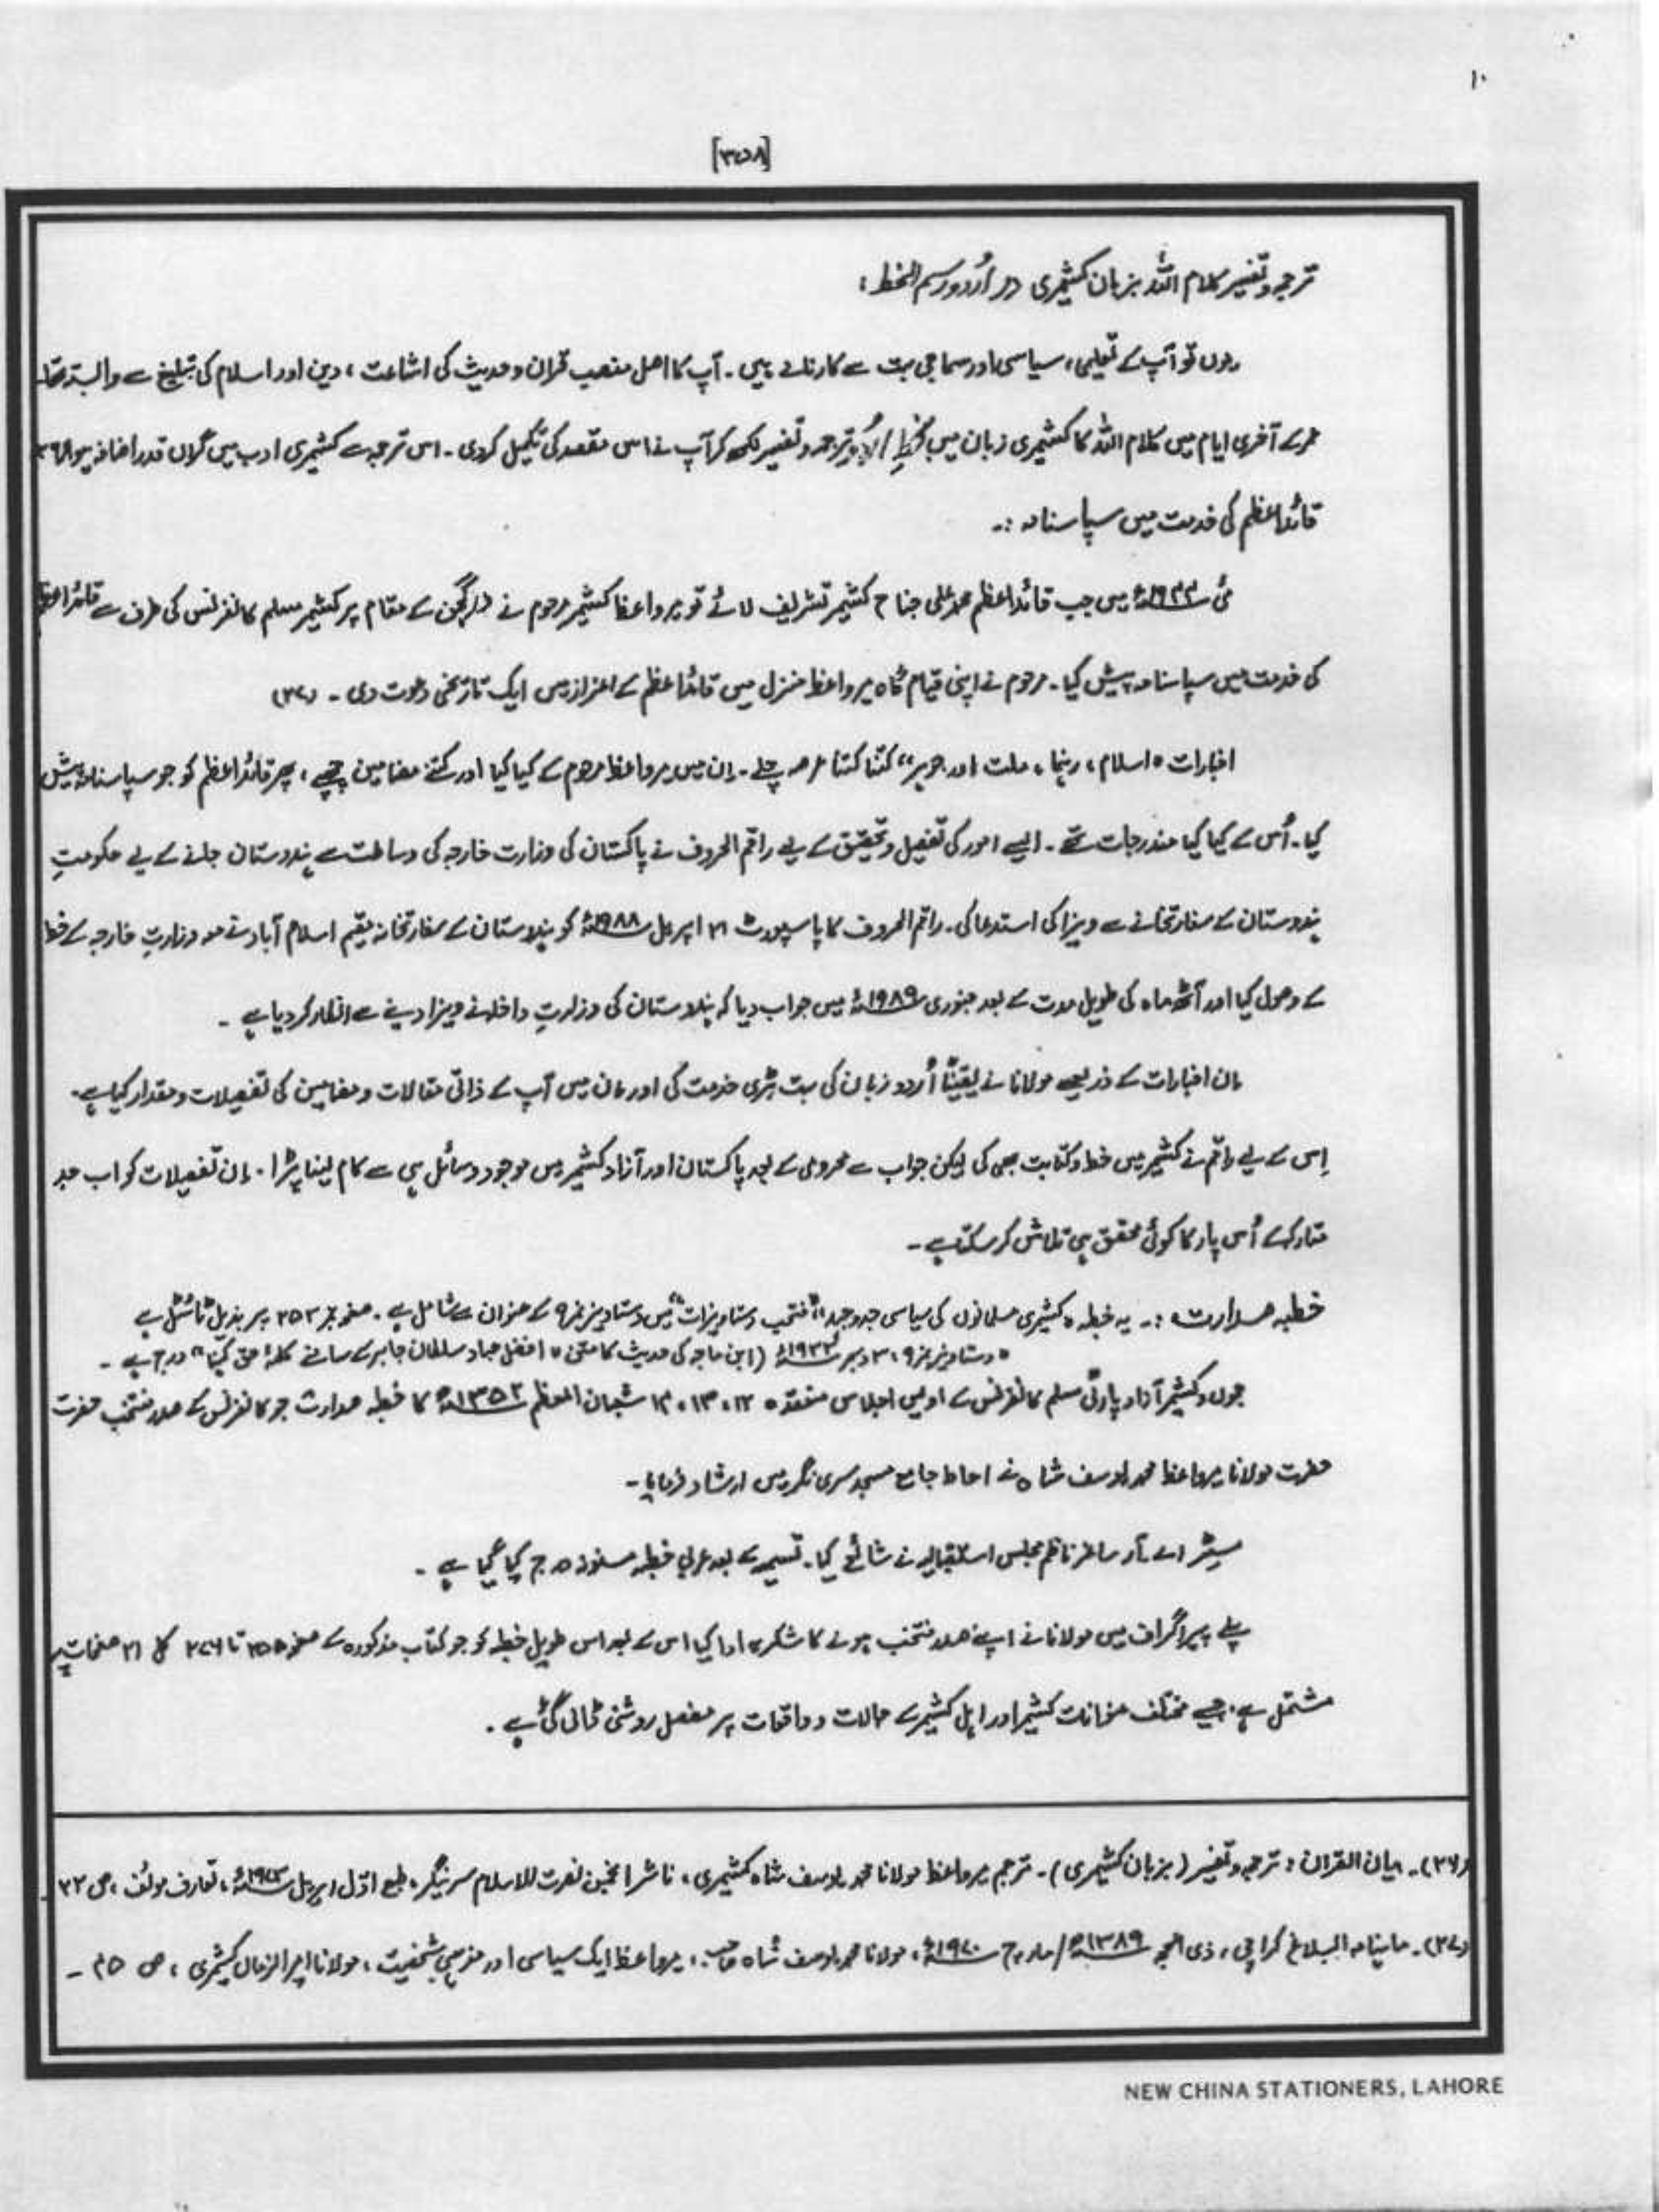 ۱۰
[۳۵۸]
ترجمہ و تفسیر کلام اللہ بزبان کشمیری در اُردو رسم الخط:
یوں تو آپ کے تعلیمی، سیاسی اور سماجی بہت سے کارنامے ہیں۔ آپ کا اصل منصب قرآن و حدیث کی اشاعت، دین اور اسلام کی تبلیغ سے وابستہ تھا۔
عمر کے آخری ایام میں کلام اللہ کا کشمیری زبان میں بخطِ اُردو ترجمہ و تفسیر لکھ کر آپ نے اس مقصد کی تکمیل کر دی۔ اس ترجمہ سے کشمیری ادب میں گراں قدر اضافہ ہوا
قائداعظم کی خدمت میں سپاسنامہ :۔
مئی ۱۹۴۴ء میں جب قائداعظم محمد علی جناح کشمیر تشریف لائے تو میر واعظ کشمیر مرحوم نے ڈلگجن کے مقام پر کشمیر مسلم کانفرنس کی طرف سے قائداعظم
کی خدمت میں سپاسنامہ پیش کیا۔ مرحوم نے اپنی قیام گاہ میر واعظ منزل میں قائداعظم کے اعزاز میں ایک تاریخی دعوت دی۔ (۳۷)
اخبارات "اسلام، رہنما، ملت اور جوہر" کتنا کتنا عرصہ چلے۔ اِن میں میر واعظ مرحوم کے کیا کیا اور کتنے مضامین چھپے، پھر قائداعظم کو جو سپاسنامہ پیش
کیا۔ اُس کے کیا کیا مندرجات تھے۔ ایسے امور کی تفصیل و تحقیق کے لیے راقم الحروف نے پاکستان کی وزارت خارجہ کی وساطت سے ہندوستان جانے کے لیے حکومتِ
ہندوستان کے سفارتخانے سے ویزا کی استدعا کی۔ راقم الحروف کا پاسپورٹ ۲۱ اپریل ۱۹۸۸ء کو ہندوستان کے سفارتخانہ مقیم اسلام آباد نے معہ وزارتِ خارجہ کے خط
کے وصول کیا اور آٹھ ماہ کی طویل مدت کے بعد جنوری ۱۹۸۹ء میں جواب دیا کہ ہندوستان کی وزارتِ داخلہ نے ویزا دینے سے انکار کر دیا ہے۔
ان اخبارات کے ذریعے مولانا نے یقیناً اُردو زبان کی بہت بڑی خدمت کی اور اِن میں آپ کے ذاتی مقالات و مضامین کی تفصیلات و مقدار کیا ہے۔
اِس کے لیے راقم نے کشمیر میں خط و کتابت بھی کی لیکن جواب سے محرومی کے بعد پاکستان اور آزاد کشمیر میں موجود وسائل ہی سے کام لینا پڑا۔ اِن تفصیلات کو اب حد
متارکہ کے اُس پار کا کوئی محقق ہی تلاش کر سکتا ہے۔
خطبہ صدارت :۔ یہ خطبہ "کشمیری مسلمانوں کی سیاسی جدوجہد" "منتخب دستاویزات" میں دستاویز نمبر ۹ کے عنوان سے شامل ہے۔ صفحہ نمبر ۲۵۳ پر بذیل ٹائٹل ہے
"دستاویز نمبر ۹، ۳ دسمبر ۱۹۳۳ء (ابن ماجہ کی حدیث کا متن "افضل جہاد سلطان جابر کے سامنے کلمۂ حق کہنا" درج ہے۔
جموں و کشمیر آزاد پارٹی مسلم کانفرنس کے اولیں اجلاس منعقدہ ۱۲، ۱۳، ۱۴ شعبان المعظم ۱۳۵۲ھ کا خطبہ صدارت جو کانفرنس کے صدر منتخب حضرت
حضرت مولانا میرواعظ محمد یوسف شاہ نے احاطہ جامع مسجد سری نگر میں ارشاد فرمایا۔
مسٹر اے۔ آر ساغر ناظم مجلس استقبالیہ نے شائع کیا۔ تسمیہ کے بعد عربی خطبہ مسنونہ درج کیا گیا ہے۔
پہلے پیراگراف میں مولانا نے اپنے صدر منتخب ہونے کا شکریہ ادا کیا اس کے بعد اس طویل خطبہ کو جو کتاب مذکورہ کے صفحہ ۲۵۵ تا ۲۷۶ کل ۲۱ صفحات پر
مشتمل ہے، جیسے مختلف عنوانات کشمیر اور اہل کشمیر کے حالات و واقعات پر مفصل روشنی ڈالی گئی ہے۔
(۳۶)۔ بیان القرآن: ترجمہ و تفسیر (بزبان کشمیری)۔ ترجمہ میر واعظ مولانا محمد یوسف شاہ کشمیری، ناشر انجمن نصرت الاسلام سرینگر، طبع اوّل اپریل، تعارف مولف، ص ۲۲۔
(۳۷)۔ ماہنامہ البلاغ کراچی، ذی الحجہ ۱۳۸۹ھ/مارچ ۱۹۷۰ء، مولانا محمد یوسف شاہ صاحب، میرواعظ ایک سیاسی اور مذہبی شخصیت، مولانا امیر الزمان کشمیری، ص ۴۵۔
NEW CHINA STATIONERS, LAHORE